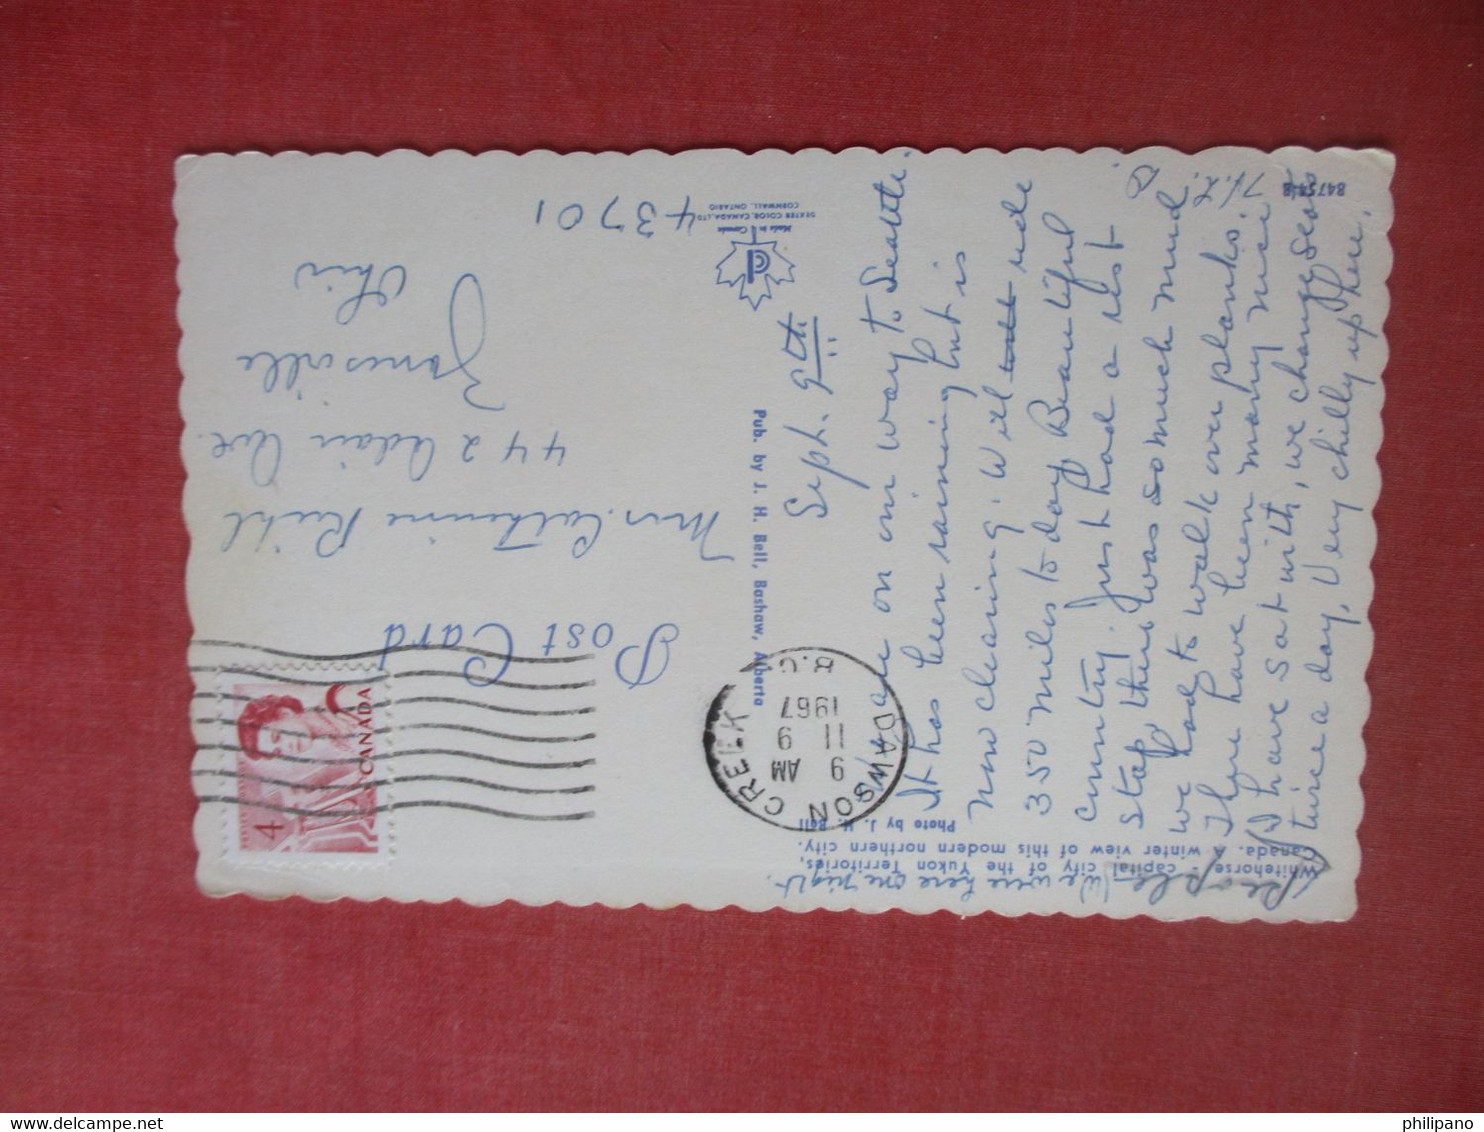 Whitehorse, capital city of the Yukon Territories,
Canada. A winter view of this modern northern city.
Photo by J. H. Bell
(We were here one night.
84754-B
Pub. by J. H. Bell, Bashaw, Alberta
Made in Canada
DEXTER COLOR, CANADA, LTD.
CORNWALL, ONTARIO
Post Card
DAWSON CREEK
9 AM
11 9
1967
B.C.
CANADA
4
Sept. 9th
We are on our way to Seattle.
It has been raining but is
now clearing. Will ride
350 miles to day Beautiful
country. Just had a rest
stop there was so much mud
we had to walk over planks.
There have been many nice
people
I have sat with, we change seats
twice a day. Very chilly up here.
Mrs. Catherine Riehl
442 Adair Ave.
Zanesville
Ohio
43701
philipano
delcampe.net